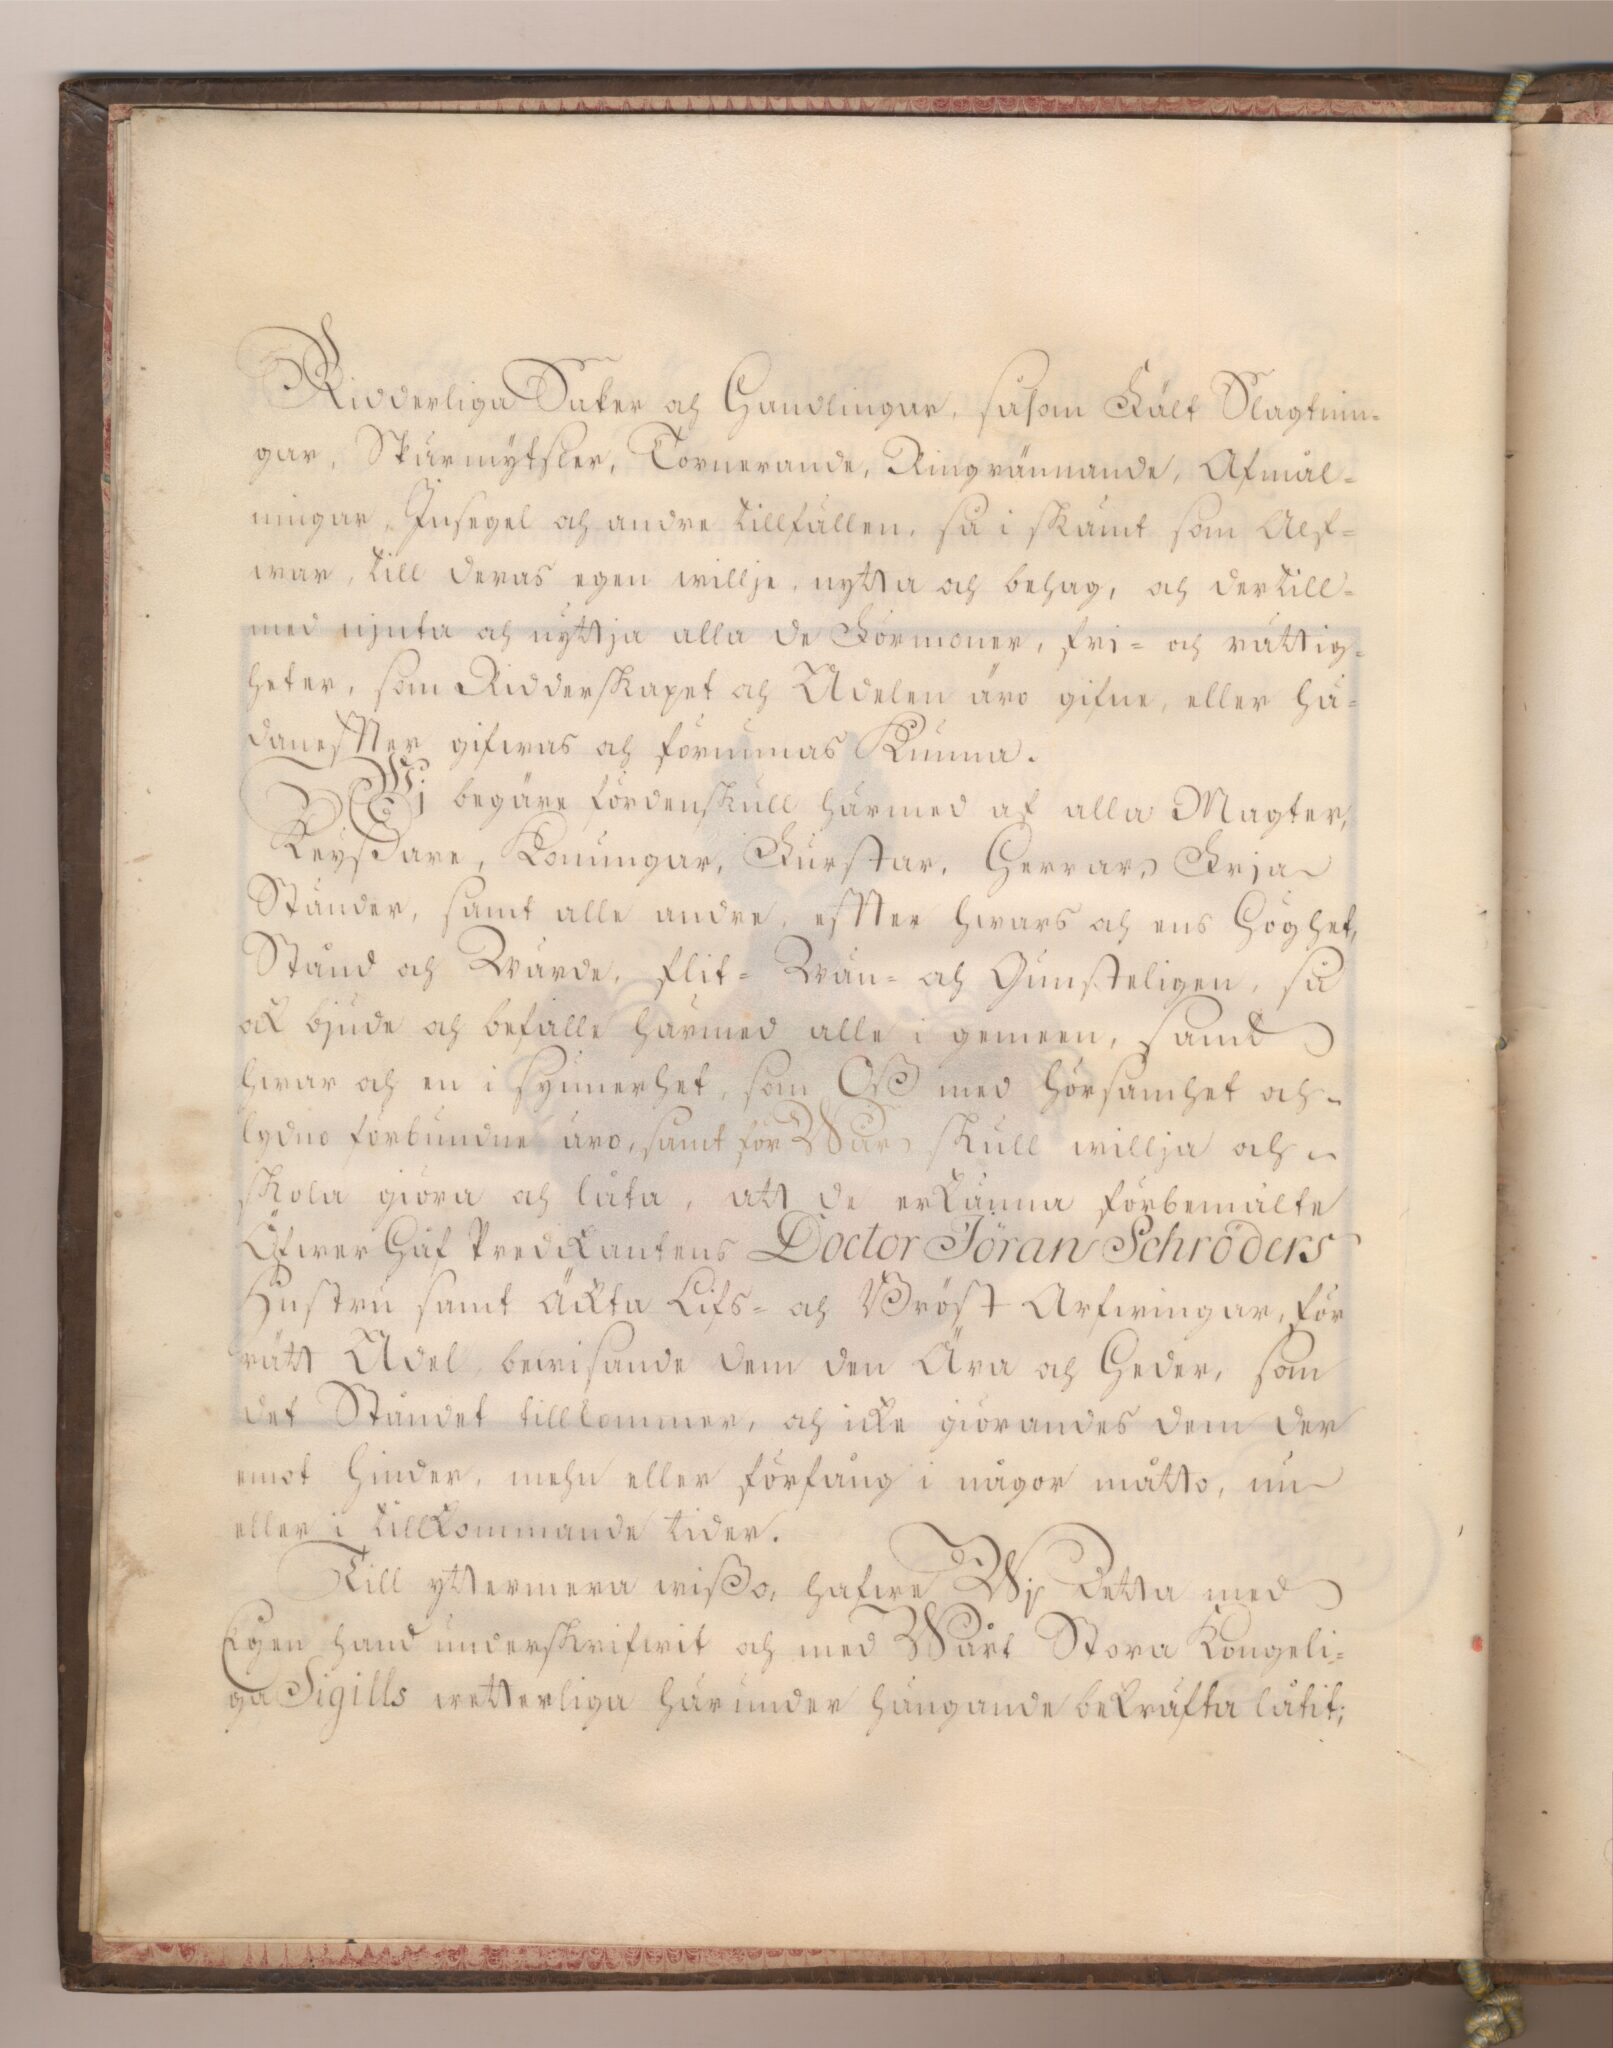 Ridderliga Saker och Handlingar, såsom Fält Slagtnin-
gar, Skärmytsler, Tornerande, Ringrännande, Afmål-
ningar, Insegel och andre tillfällen, så i skämt som Alf-
war, till deras egen willje, nytta och behag, och dertill-
med njuta och nyttja alla de Förmoner, fri- och rättig-
heter, som Ridderskapet och Adelen äro gifne, eller hä-
danefter gifwas och förunnas kunna.
Wj begäre fördenskull härmed af alla Magter,
Keyßare, Konungar, Furstar, Herrar, Frja
Ständer, samt alle andre, effter hwars och ens Höghet,
Stånd och Wärde, flit- Wän- och Gunsteligen, så
ok bjude och befalle härmed alle i gemeen, samt
hwar och en i synnerhet, som Oß med hörsamhet och
lydno förbundne äro, samt för Wår skull willja och
skola giöra och låta, att de erkänna förbemälte
Öfwer Håf Predikantens Doctor Jöran Schröders
Hustru samt Äckta Lifs- och Bröst Arfwingar, för
rätt Adel, bewisande dem den Ära och Heder, som
det Ståndet tillkommer, och icke giörandes dem der
emot hinder, mehn eller förfång i någor måtto, nu
eller i tillkommande tider.
Till yttermera wißo, hafwe Wj Detta med
Egen hand underskrifwit och med Wårt Stora Kongeli-
ga Sigills wetterliga härunder hängande bekräfta låtit;